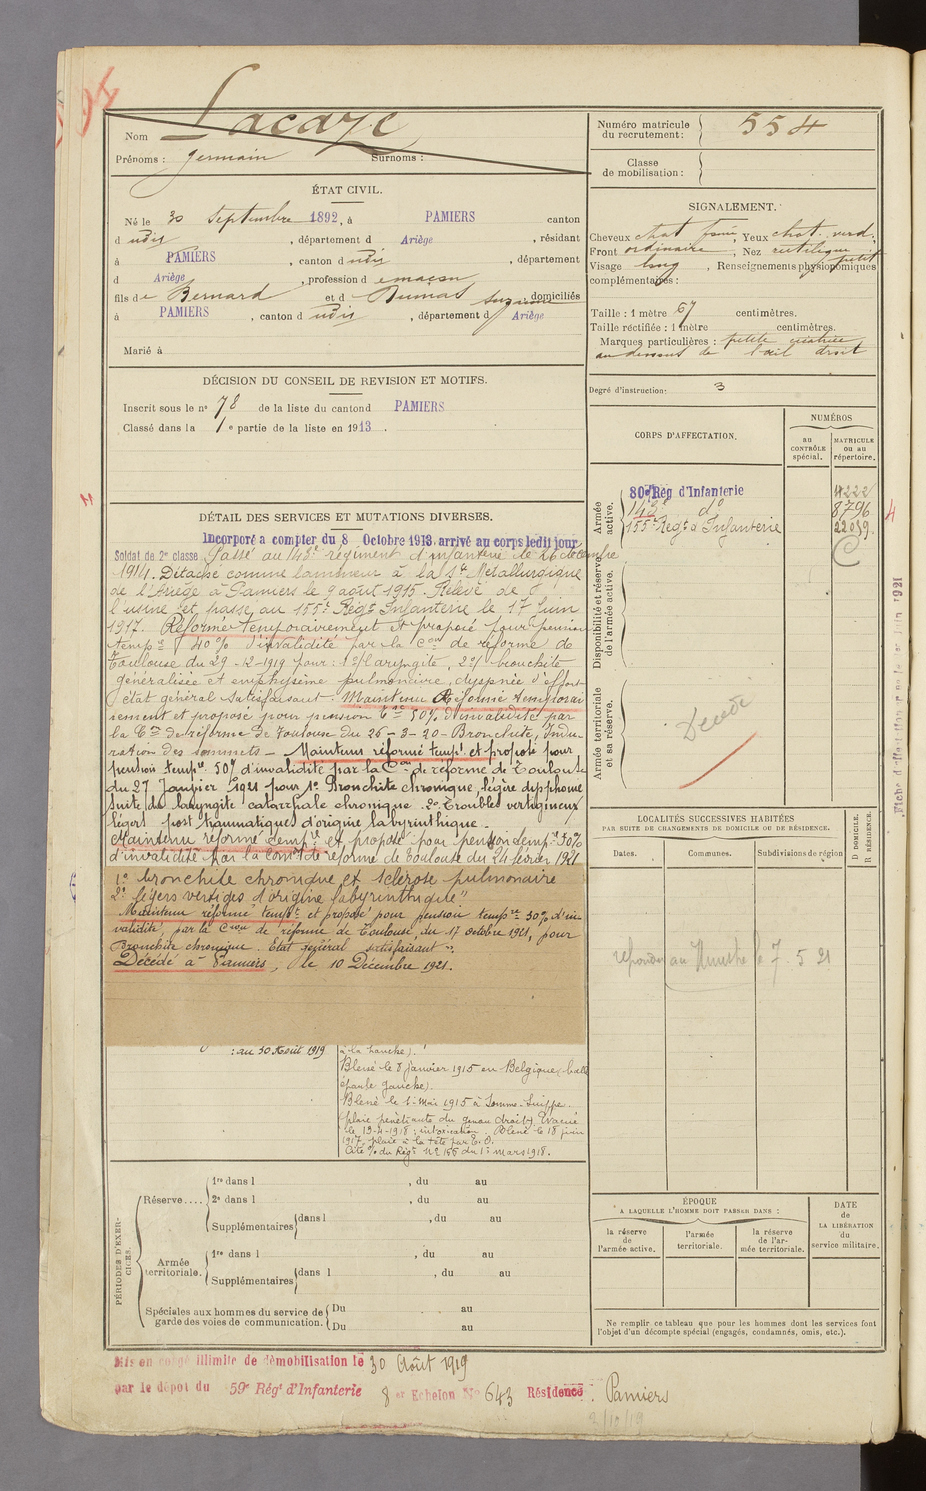 Nom Lacaze
Prénoms : Germain Surnoms :
ÉTAT CIVIL.
Né le 30 Septembre 1892, à PAMIERS canton
d udit, département d Ariège, résidant
à PAMIERS, canton d udit, département
d Ariège, profession d
fils de Bernard et d Dumas Suzanne domiciliés
à PAMIERS, canton d udit, département d Ariège
Marié à
DÉCISION DU CONSEIL DE REVISION ET MOTIFS.
Inscrit sous le n° 78 de la liste du canton d PAMIERS
Classé dans la 1e partie de la liste en 1913.
DÉTAIL DES SERVICES ET MUTATIONS DIVERSES.
Incorporé a compter du 8 Octobre 1913 arrivé au corps ledit jour
Soldat de 2e classe Passé au 143e régiment d'infanterie le 26 décembre
1914. Détaché comme lamineur à la Sté Métallurgique
de l'Ariège à Pamiers le 9 août 1915. Relevé de
l'usine et passe au 155e Régt Infanterie le 17 Juin
1917. Réformé temporairement et proposé pour pension
tempre 40% d'invalidité par la Con de réforme de
Toulouse du 29-12-1919 pour : 1°/ laryngite, 2°/ bronchite
généralisée et emphysème pulmonaire, dyspnée d'effort
état général satisfaisant. Maintenu Réformé temporai
rement et proposé pour pension tre 50% d'invalidité par
la Con de réforme de Toulouse du 26-3-20 - Bronchite, Indu-
ration des sommets - Maintenu réformé tempt et proposé pour
pension tempre 50% d'invalidité par la Con de réforme de Toulouse
du 27 Janvier 1921 pour 1° Bronchite chronique, légère dysphonie
suite de laryngite catarrhale chronique. 2° Troubles vertigineux
légers post traumatiques d'origine labyrinthique.
Maintenu réformé tempre et proposé pour pension tempre 50%
d'invalidité par la Comon de réforme de Toulouse du 24 février 1921
1° bronchite chronique et sclérose pulmonaire
2° légers vertiges d'origine labyrinthique"
Maintenu réformé tempre et proposé pour pension tempre 50% d'in
validité, par la Cson de réforme de Toulouse, du 17 octobre 1921, pour
Bronchite chronique. Etat général satisfaisant".
Décédé à Pamiers, le 10 Décembre 1921.
: au 30 Août 1919
à la hanche).
Blessé le 8 janvier 1915 en Belgique (balle
épaule gauche).
Blessé le 1 Mai 1915 à Somme-Suippe.
(plaie pénétrante du genou droit) Evacué
le 13-4-1918 : intoxication. Blessé le 18 juin
1917, plaie à la tête par E.O.
Cité % du Régt N° 166 du 1er mars 1918.
PÉRIODES D'EXERCICES.
Réserve....
1re dans l , du au
2e dans l , du au
Supplémentaires dans l , du au
Armée territoriale.
1re dans l , du au
Supplémentaires dans l , du au
Spéciales aux hommes du service de garde des voies de communication.
Du au
Du au
Mis en congé illimité de démobilisation le 30 Août 1919
par le dépôt du 59e Régt d'Infanterie 8 er Echelon N° 643 Résidence : Pamiers
Numéro matricule du recrutement : 554
Classe de mobilisation :
SIGNALEMENT.
Cheveux chat foncé, Yeux chat. verd.
Front ordinaire, Nez rectiligne petit
Visage long, Renseignements physionomiques
complémentaires :
Taille : 1 mètre 67 centimètres.
Taille rectifiée : 1 mètre centimètres.
Marques particulières : petite cicatrice
au dessus de l'œil droit
Degré d'instruction : 3
CORPS D'AFFECTATION.
NUMÉROS
au CONTRÔLE spécial.
MATRICULE ou au répertoire.
Armée active.
80e Rég d'Infanterie 4222
143e do 8796
155e Regt d'Infanterie 22039.
Disponibilité et réserve de l'armée active.
Armée territoriale et sa réserve.
Décédé
LOCALITÉS SUCCESSIVES HABITÉES
PAR SUITE DE CHANGEMENTS DE DOMICILE OU DE RÉSIDENCE.
Dates.
Communes.
Subdivisions de région
D DOMICILE.
R RÉSIDENCE.
au Ministre le 7. 5 21
ÉPOQUE
A LAQUELLE L'HOMME DOIT PASSER DANS :
la réserve de l'armée active.
l'armée territoriale.
la réserve de l'armée territoriale.
DATE de LA LIBÉRATION du service militaire.
Ne remplir ce tableau que pour les hommes dont les services font
l'objet d'un décompte spécial (engagés, condamnés, omis, etc.).